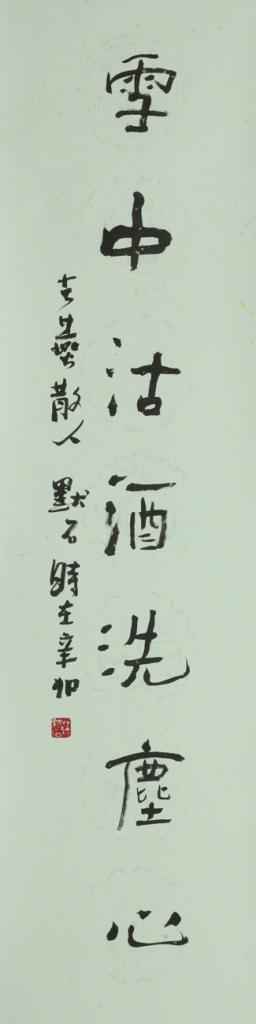 雪中沽酒洗塵心
散人 默石 時在辛卯